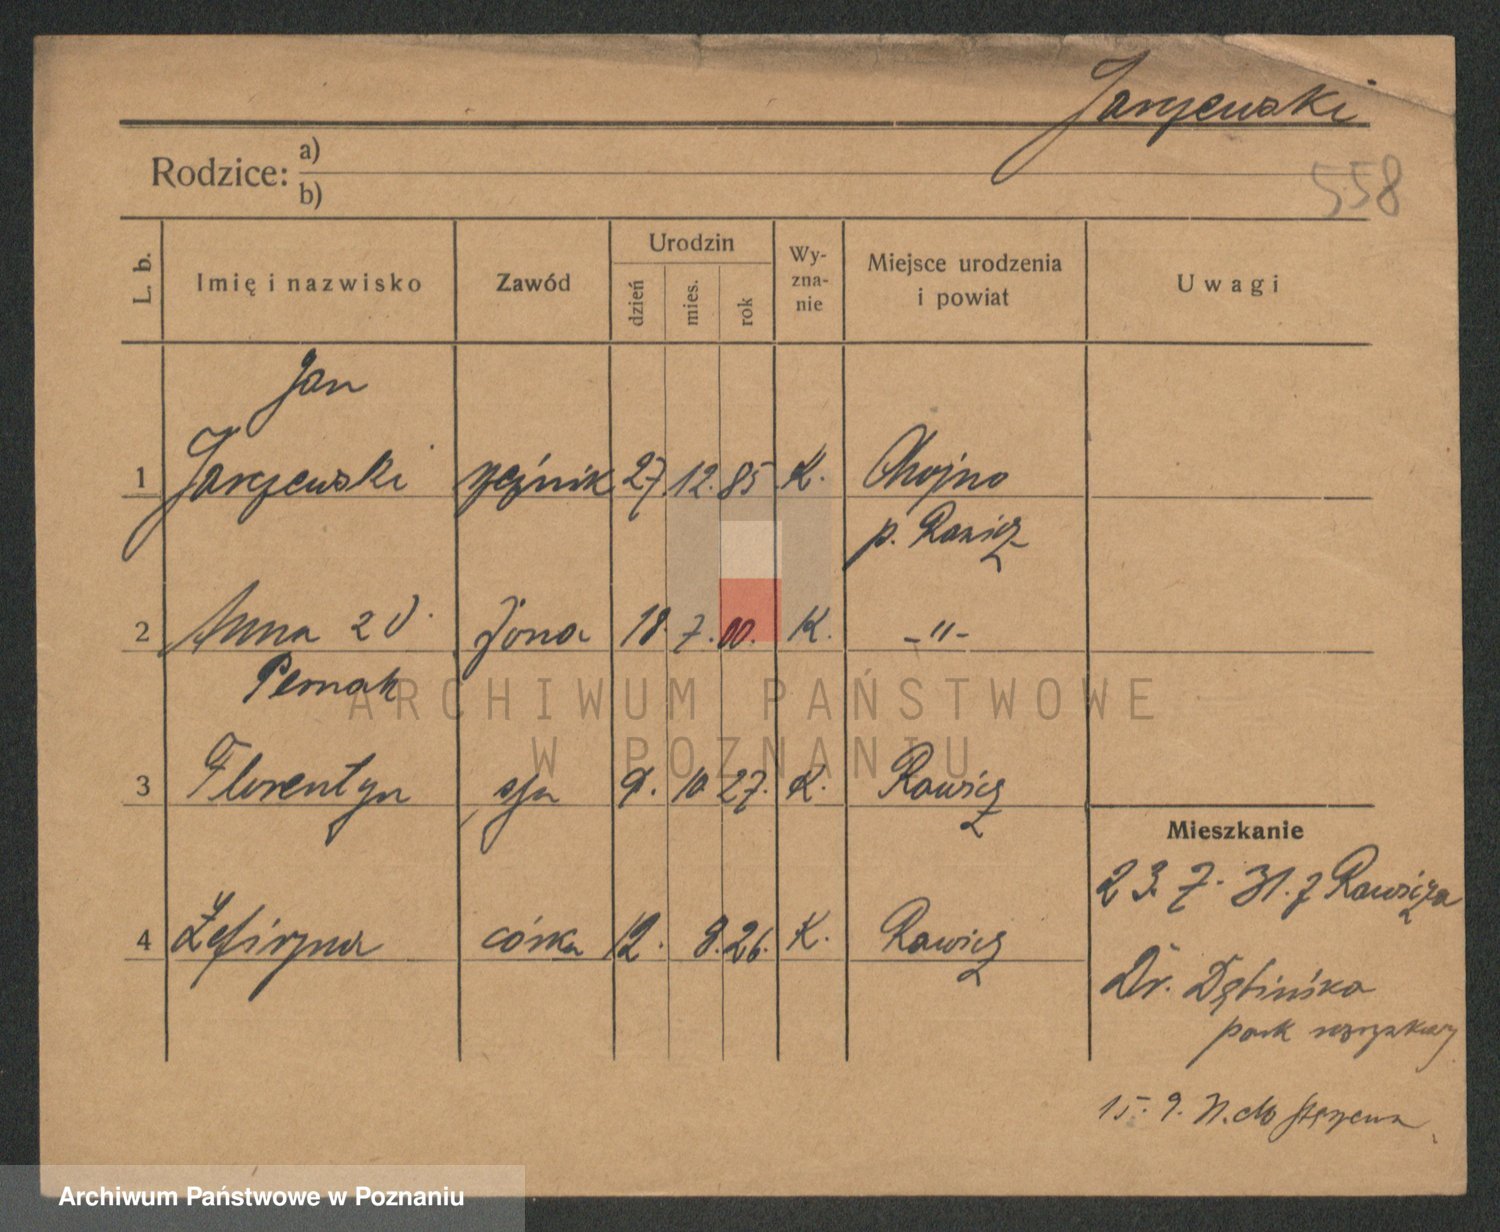 Jarzewski
Rodzice: a)
b)
558
L. b.
Imię i nazwisko
Zawód
Urodzin
dzień
mies.
rok
Wy-
zna-
nie
Miejsce urodzenia
i powiat
Uwagi
Jan
1 Jarzewski rzeźnik 27 12. 85 K. Chojno
p. Rawicz
2 Anna z d. żona 18. 7. 00. K. -"-
Pernak
3 Florentyn syn 9. 10 27. K. Rawicz
Mieszkanie
23. 7. 31. z Rawicza
4 Zefiryna córka 12. 8. 26. K. Rawicz
Dr. Dębińska
park
15. 9. 31. do
ARCHIWUM PAŃSTWOWE
W POZNANIU
Archiwum Państwowe w Poznaniu